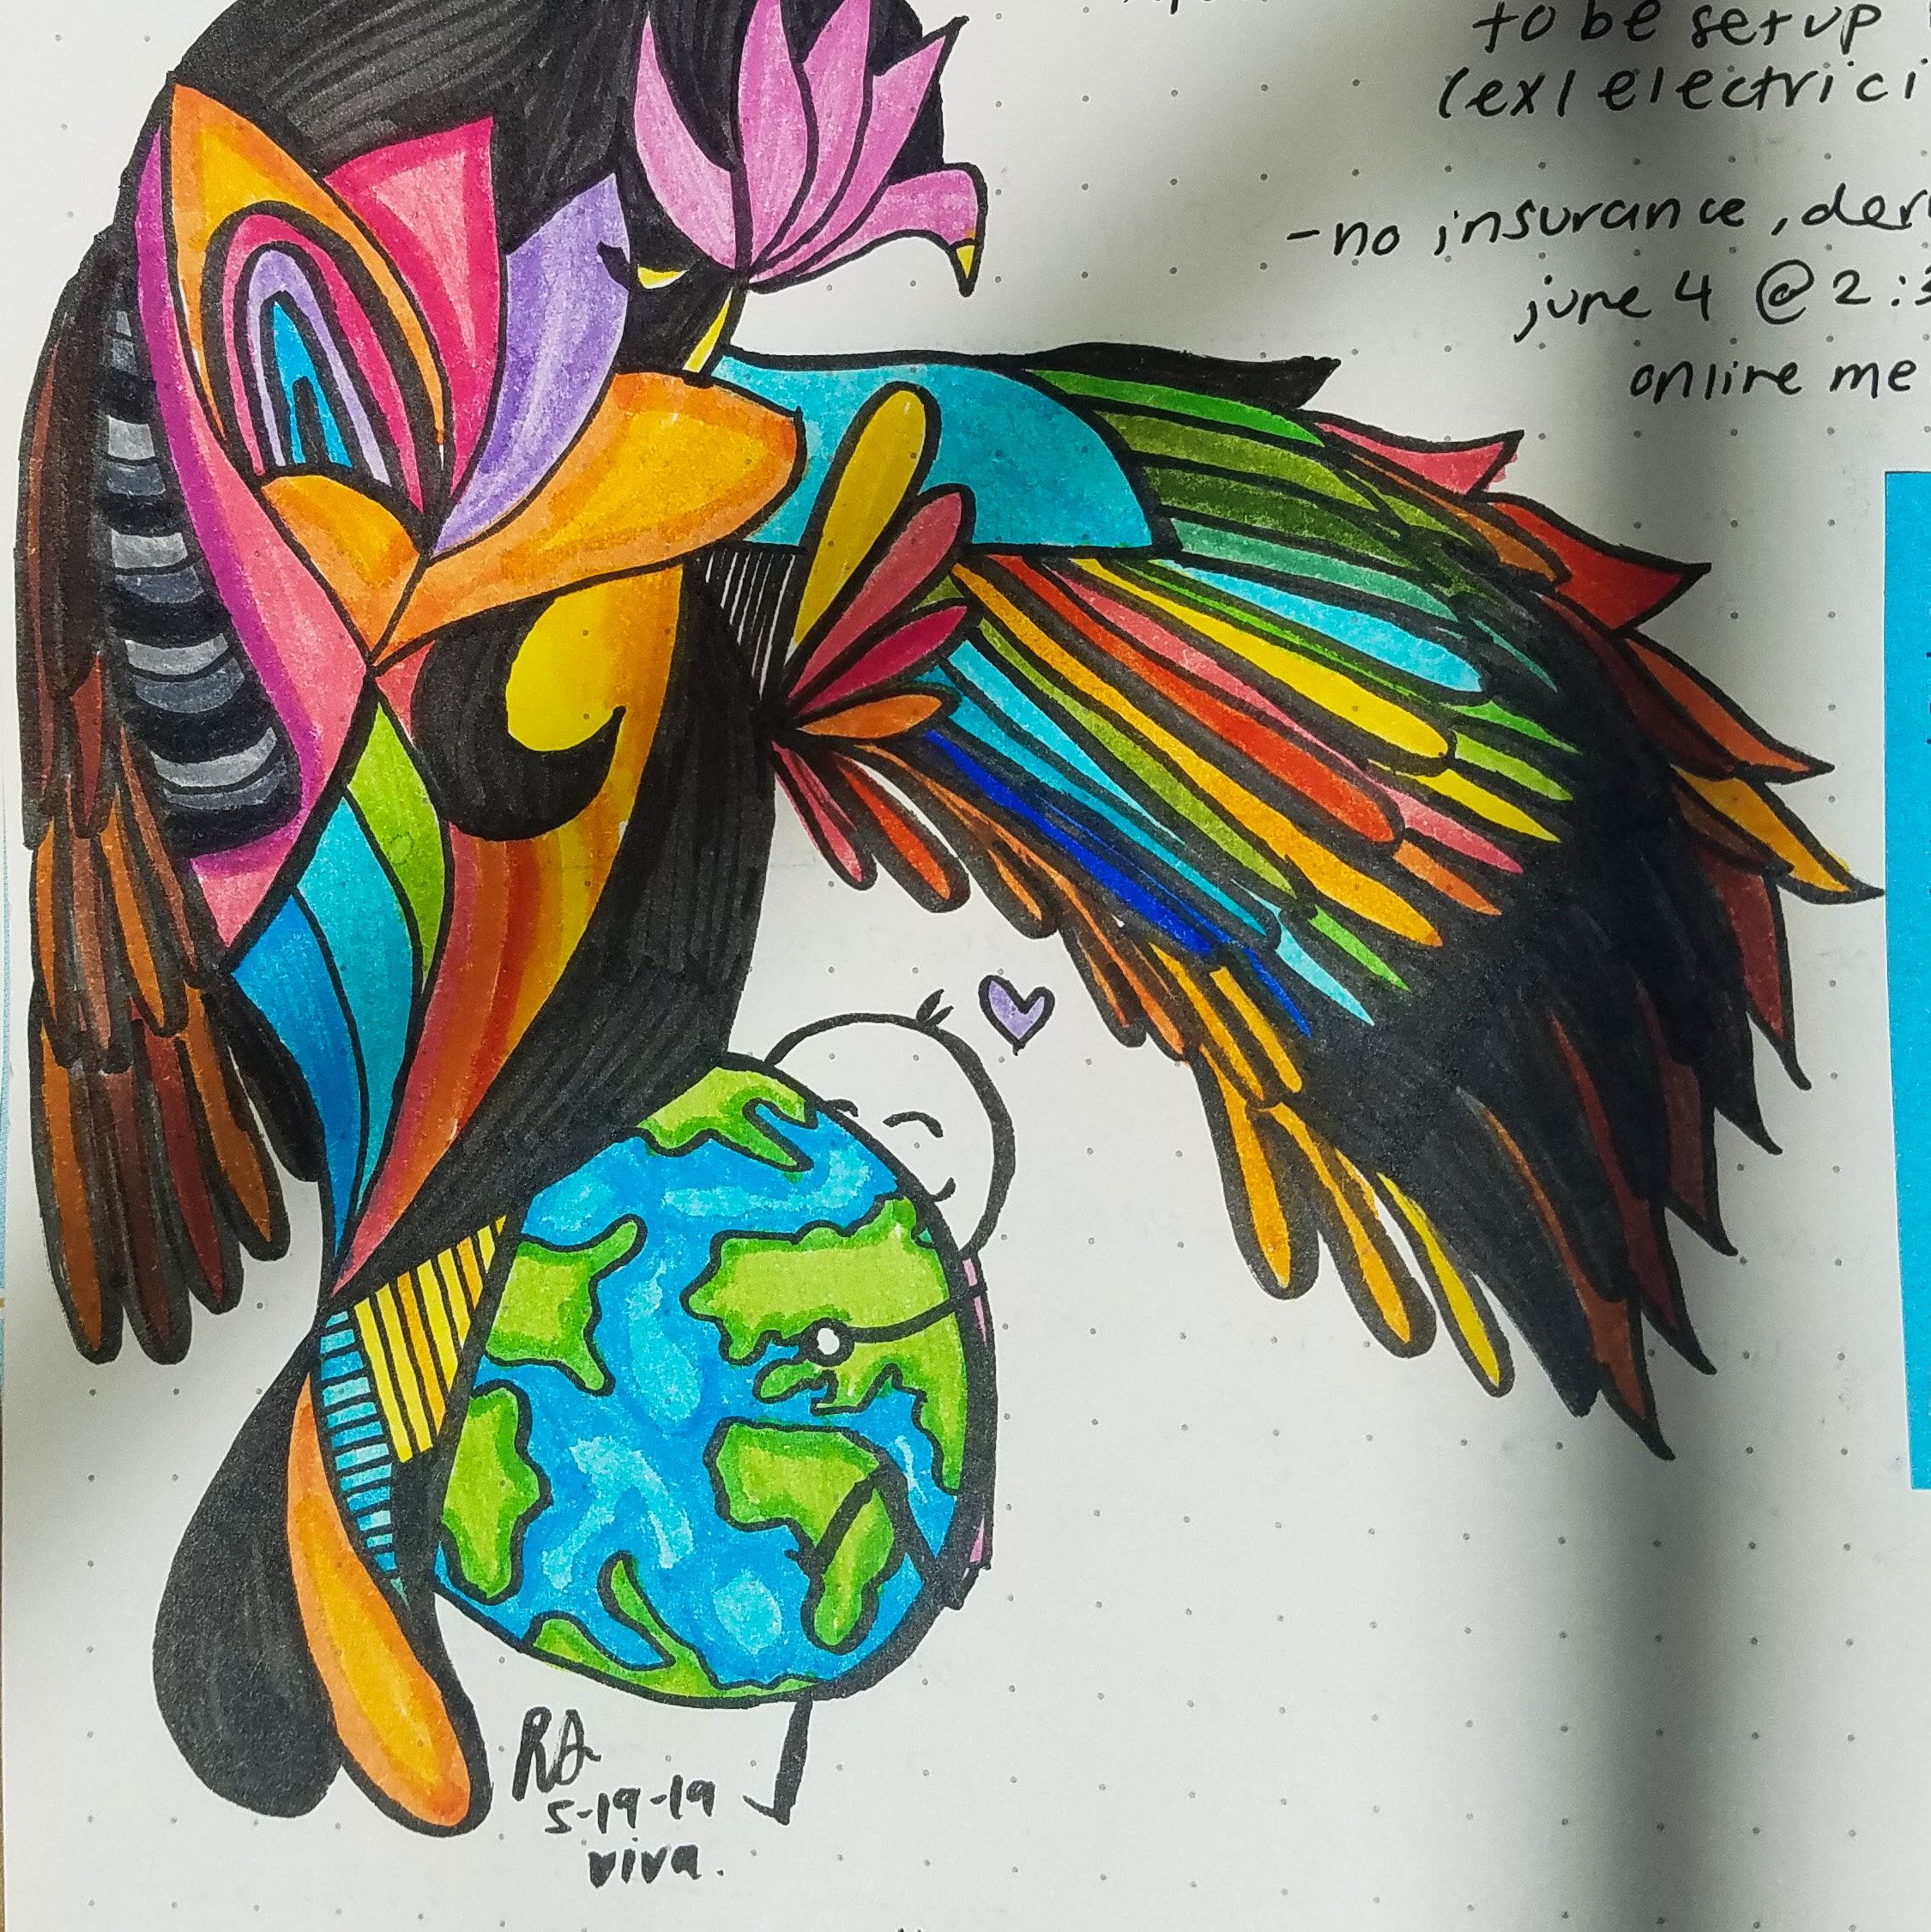 to be setup
(ex/ electrici
-no insurance, der
june 4 @ 2:3
online me
RA
5-19-19
viva.